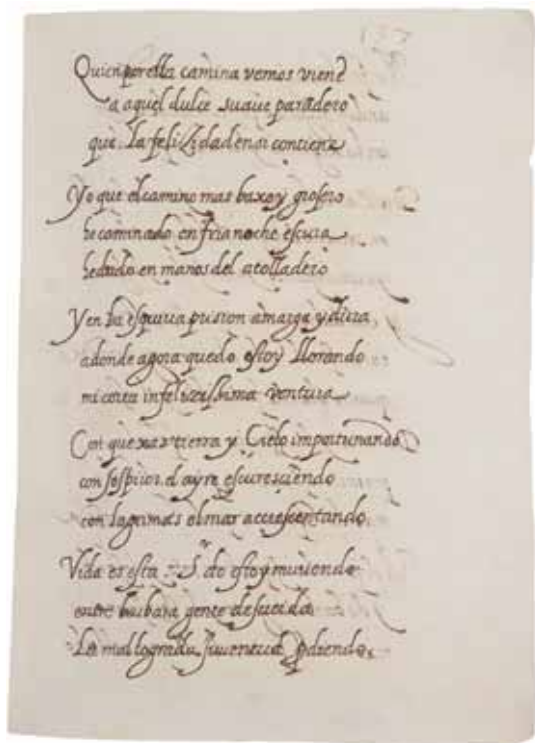 Quien por ella camina vemos viene
a aquel dulce suaue paradero
que la feliZidad en si contiene
Yo que el camino mas baxo y grosero
he caminado en fria noche escura
he dado en manos del atolladero
Y en la esquiua prision amarga y dura
adonde agora quedo estoy llorando
mi corta infelicissima ventura
Con quexas tierra y Cielo importunando
con sospiros el ayre escuresciendo
con lagrimas el mar accrescentando.
Vida es esta Sr. do estoy muriendo
entre barbara gente descreida
La mal lograda juuentud pdiendo.